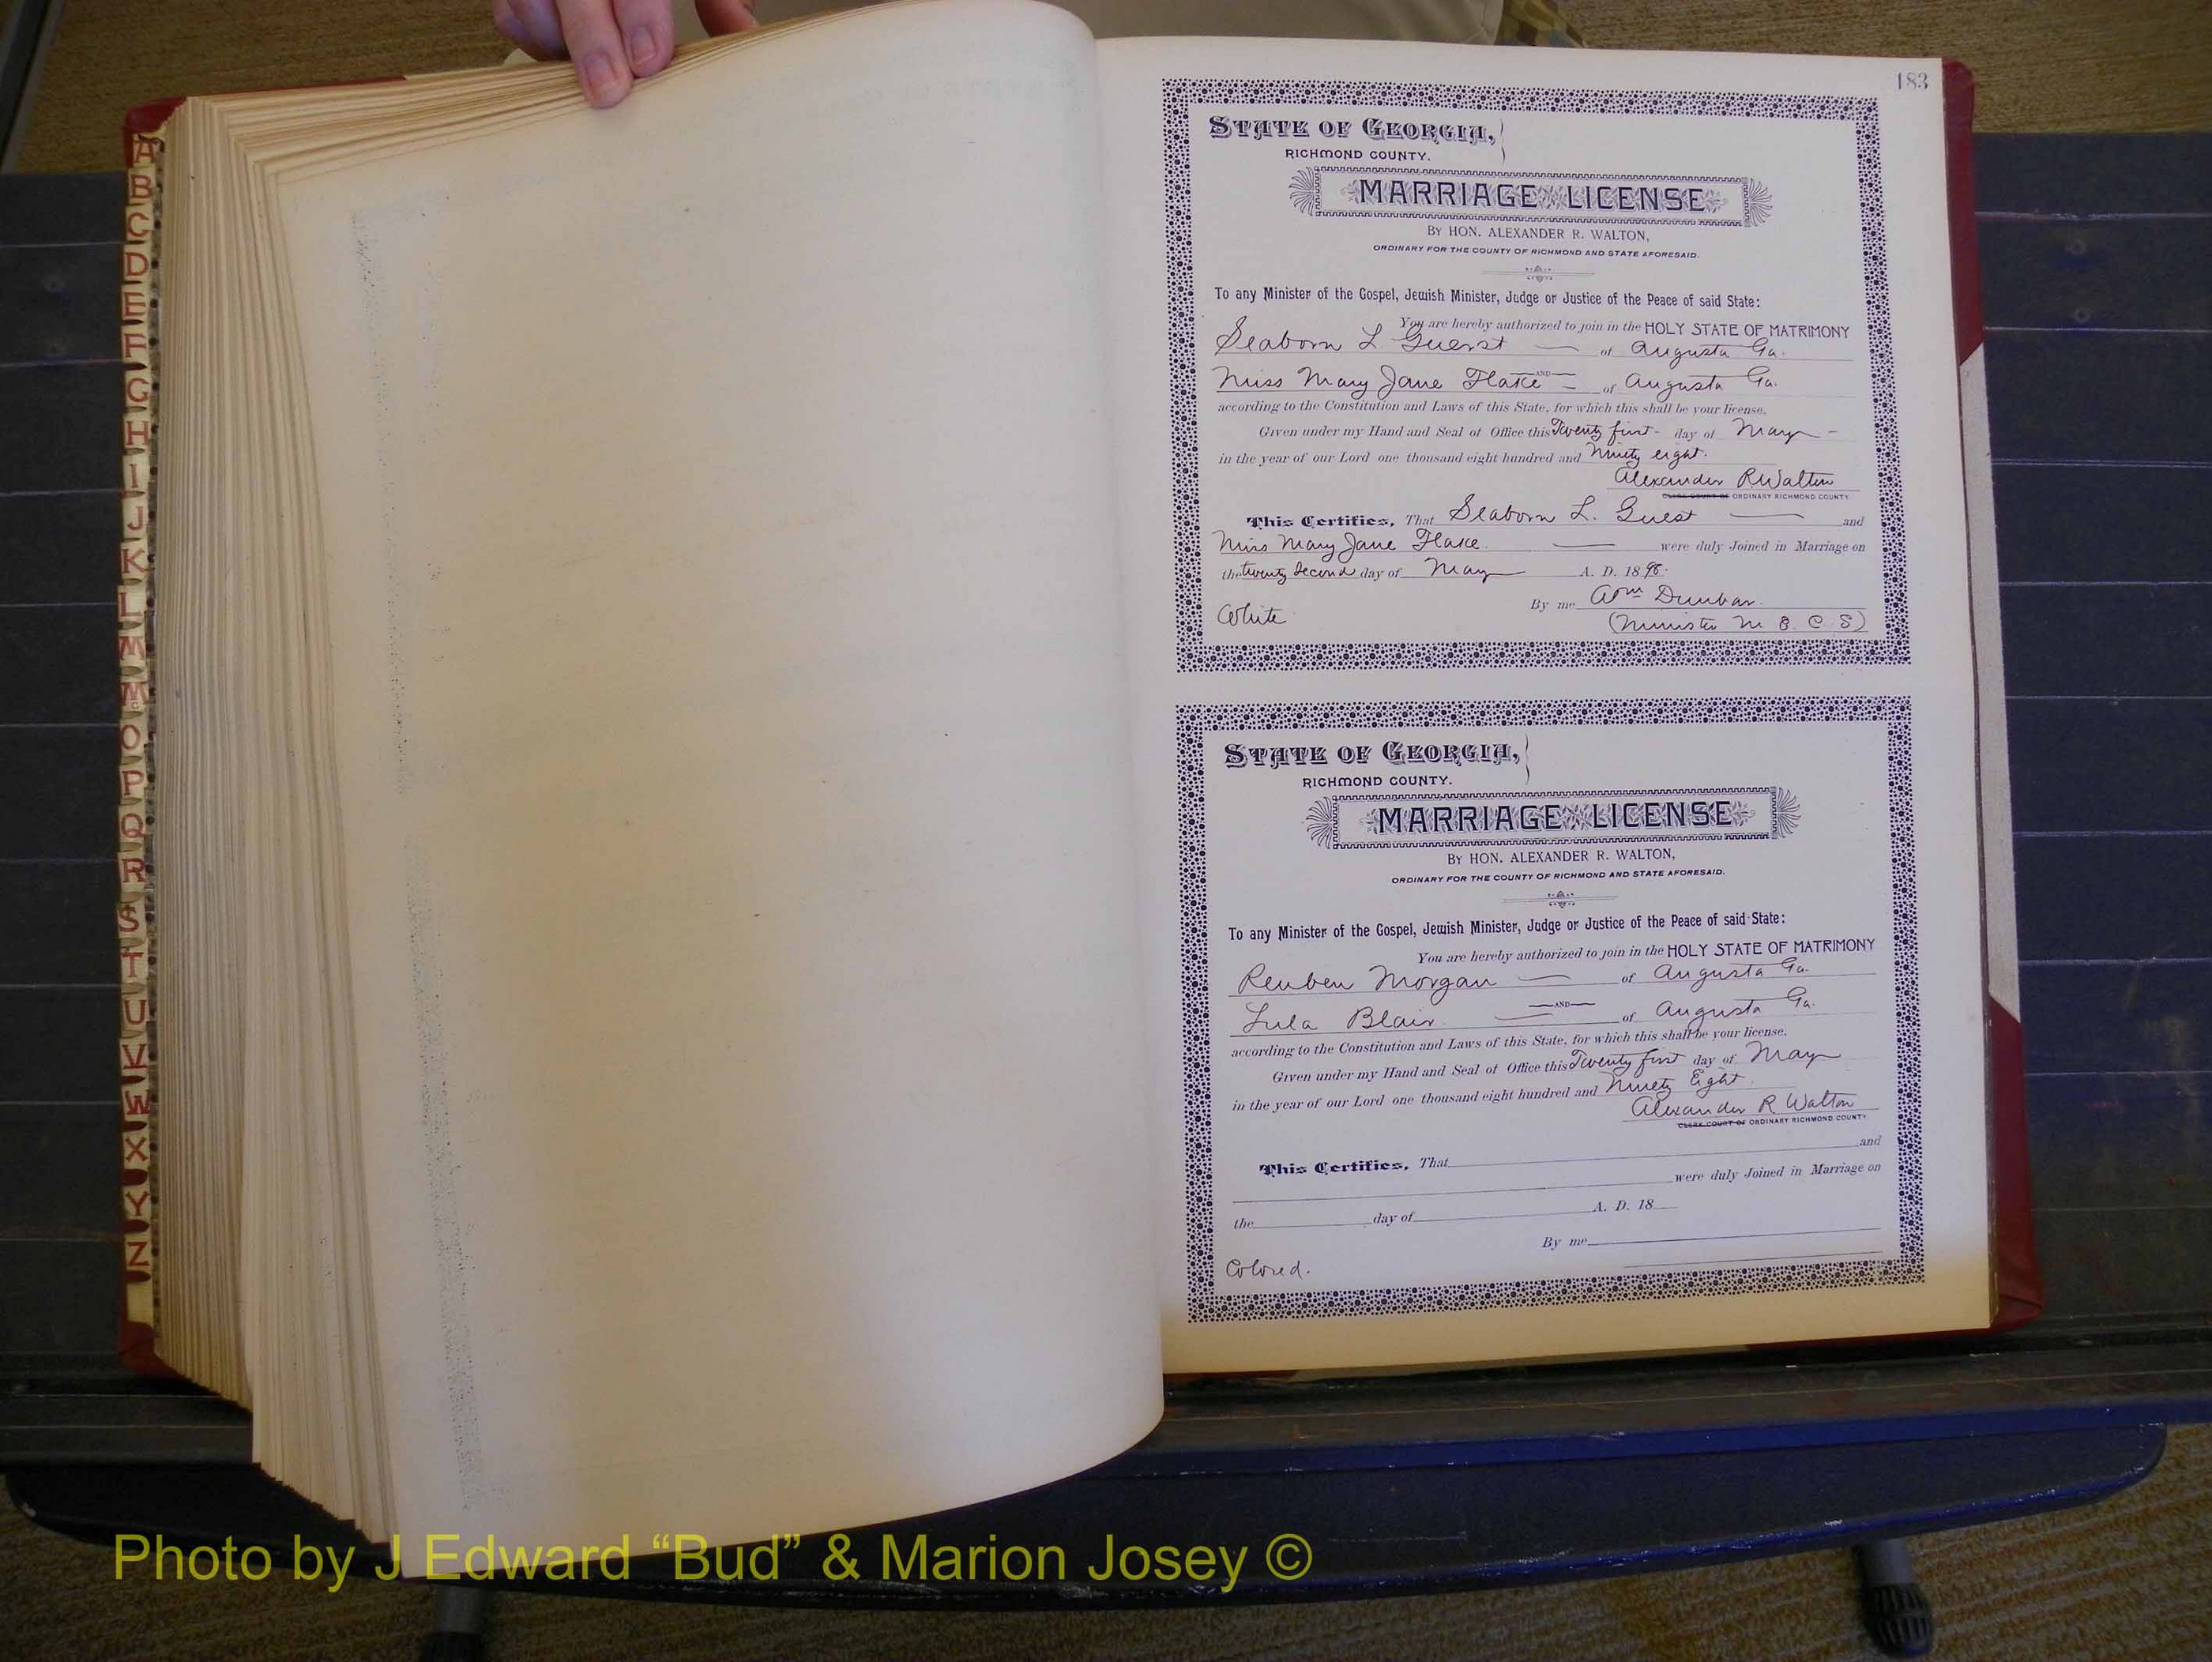 A
B
C
D
E
F
G
H
I
J
K
L
M
Mc
O
P
Q
R
S
T
U
V
W
X
Y
Z
183
STATE OF GEORGIA,
RICHMOND COUNTY.
MARRIAGE LICENSE
BY HON. ALEXANDER R. WALTON,
ORDINARY FOR THE COUNTY OF RICHMOND AND STATE AFORESAID.
To any Minister of the Gospel, Jewish Minister, Judge or Justice of the Peace of said State:
You are hereby authorized to join in the HOLY STATE OF MATRIMONY
Seaborn L Guest of Augusta Ga.
AND
Miss Mary Jane Flake of Augusta Ga.
according to the Constitution and Laws of this State, for which this shall be your license.
Given under my Hand and Seal of Office this Twenty first day of May
in the year of our Lord one thousand eight hundred and Ninety eight.
Alexander R Walton
CLERK COURT OF ORDINARY RICHMOND COUNTY.
This Certifies, That Seaborn L. Guest and
Miss Mary Jane Flake. were duly Joined in Marriage on
the twenty second day of May A. D. 1898.
By me Wm Dunbar.
White (Minister M E C S)
STATE OF GEORGIA,
RICHMOND COUNTY.
MARRIAGE LICENSE
BY HON. ALEXANDER R. WALTON,
ORDINARY FOR THE COUNTY OF RICHMOND AND STATE AFORESAID.
To any Minister of the Gospel, Jewish Minister, Judge or Justice of the Peace of said State:
You are hereby authorized to join in the HOLY STATE OF MATRIMONY
Reuben Morgan of Augusta Ga.
AND
Lula Blair of Augusta Ga.
according to the Constitution and Laws of this State, for which this shall be your license.
Given under my Hand and Seal of Office this Twenty first day of May
in the year of our Lord one thousand eight hundred and Ninety Eight.
Alexander R Walton
CLERK COURT OF ORDINARY RICHMOND COUNTY.
This Certifies, That and
were duly Joined in Marriage on
the day of A. D. 18
By me
Colored.
Photo by J Edward “Bud” & Marion Josey ©